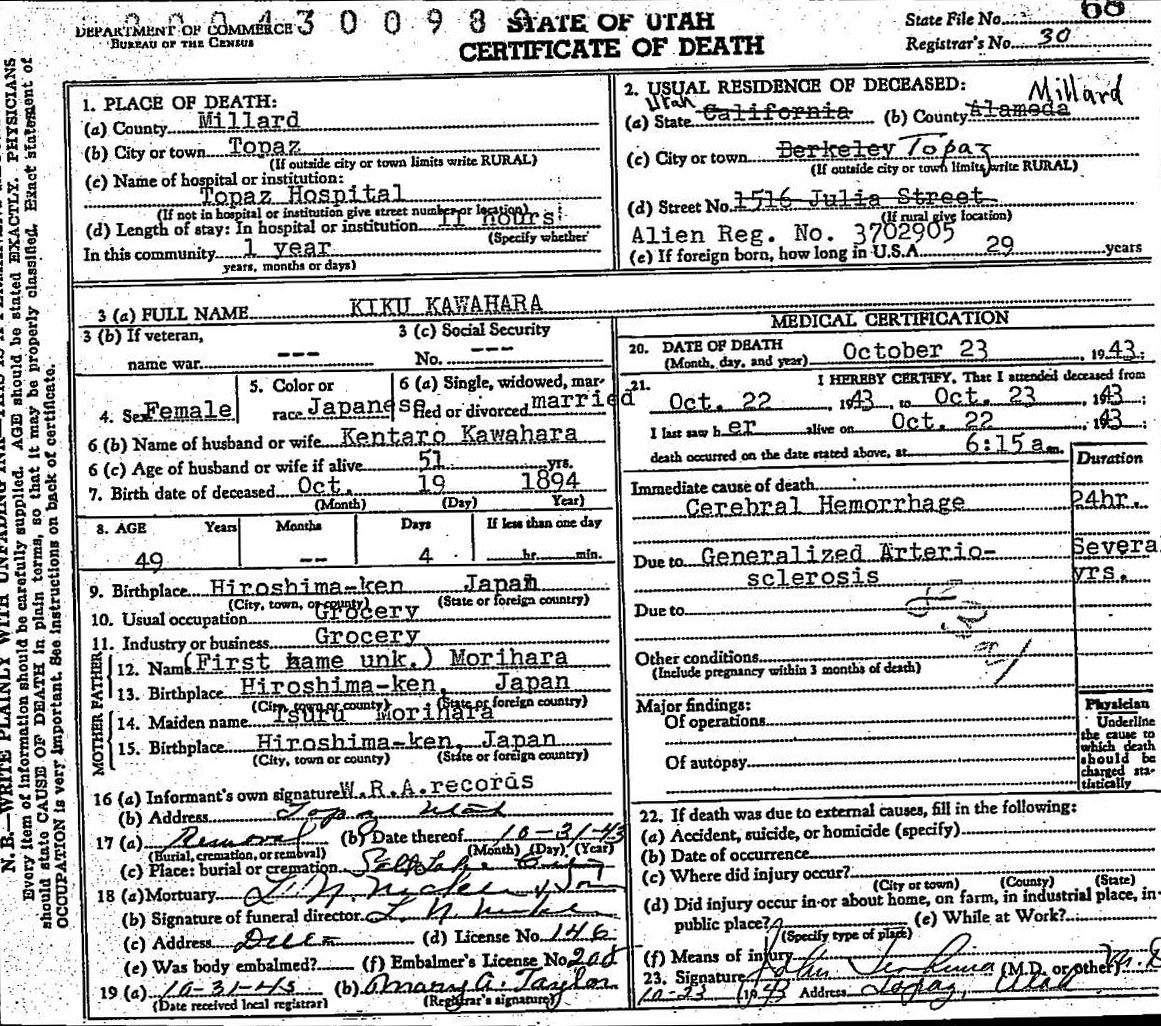 DEPARTMENT OF COMMERCE
BUREAU OF THE CENSUS
3 0 0 9 8
STATE OF UTAH
CERTIFICATE OF DEATH
State File No. 68
Registrar's No. 30
N. B.—WRITE PLAINLY WITH UNFADING INK—THIS IS A
Every item of information should be carefully supplied. AGE should be stated EXACTLY. PHYSICIANS
should state CAUSE OF DEATH in plain terms, so that it may be properly classified. Exact statement of
OCCUPATION is very important. See instructions on back of certificate.
1. PLACE OF DEATH:
(a) County Millard
(b) City or town Topaz
(If outside city or town limits write RURAL)
(c) Name of hospital or institution:
Topaz Hospital
(If not in hospital or institution give street number or location)
(d) Length of stay: In hospital or institution 11 hours
(Specify whether
In this community 1 year
years, months or days)
2. USUAL RESIDENCE OF DECEASED:
Utah Millard
(a) State California (b) County Alameda
(c) City or town Berkeley Topaz
(If outside city or town limits write RURAL)
(d) Street No. 1516 Julia Street
(If rural give location)
Alien Reg. No. 3702905
(e) If foreign born, how long in U.S.A. 29 years
3 (a) FULL NAME KIKU KAWAHARA
3 (b) If veteran,
name war ---
3 (c) Social Security
No. ---
4. Sex Female
5. Color or
race Japanese
6 (a) Single, widowed, mar-
ried or divorced married
6 (b) Name of husband or wife Kentaro Kawahara
6 (c) Age of husband or wife if alive 51 yrs.
7. Birth date of deceased Oct. 19 1894
(Month) (Day) Year)
8. AGE Years Months Days If less than one day
49 -- 4 hr. min.
9. Birthplace Hiroshima-ken Japan
(City, town, or county) (State or foreign country)
10. Usual occupation Grocery
11. Industry or business Grocery
FATHER
12. Name (First name unk.) Morihara
13. Birthplace Hiroshima-ken, Japan
(City, town or county) (State or foreign country)
MOTHER
14. Maiden name Tsuru Morihara
15. Birthplace Hiroshima-ken, Japan
(City, town or county) (State or foreign country)
16 (a) Informant's own signature W.R.A. records
(b) Address Topaz Utah
17 (a) Removal (b) Date thereof 10-31-43
(Burial, cremation, or removal) (Month) (Day) (Year)
(c) Place: burial or cremation Salt Lake City
18 (a) Mortuary
(b) Signature of funeral director
(c) Address (d) License No. 146
(e) Was body embalmed? (f) Embalmer's License No. 208
19 (a) 10-31-43 (b) Mary A. Taylor
(Date received local registrar) (Registrar's signature)
MEDICAL CERTIFICATION
20. DATE OF DEATH
(Month, day, and year) October 23, 1943
21. I HEREBY CERTIFY, That I attended deceased from
Oct. 22, 1943 to Oct. 23, 1943;
I last saw h er alive on Oct. 22, 1943
death occurred on the date stated above, at 6:15 a m.
Duration
Immediate cause of death
Cerebral Hemorrhage 24hr.
Due to Generalized Arterio- Severa
sclerosis yrs.
Due to
Other conditions
(Include pregnancy within 3 months of death)
Major findings:
Of operations
Of autopsy
Physician
Underline
the cause to
which death
should be
charged sta-
tistically
22. If death was due to external causes, fill in the following:
(a) Accident, suicide, or homicide (specify)
(b) Date of occurrence
(c) Where did injury occur?
(City or town) (County) (State)
(d) Did injury occur in or about home, on farm, in industrial place, in
public place? (e) While at Work?
(Specify type of place)
(f) Means of injury
23. Signature John Teshima (M.D. or other) M.D
10-23 1943 Address Topaz, Utah